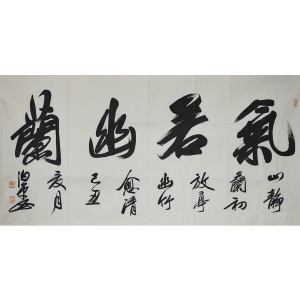 氣若幽蘭
山靜
蘭初
放尋
幽竹
愈清
己丑
夜月